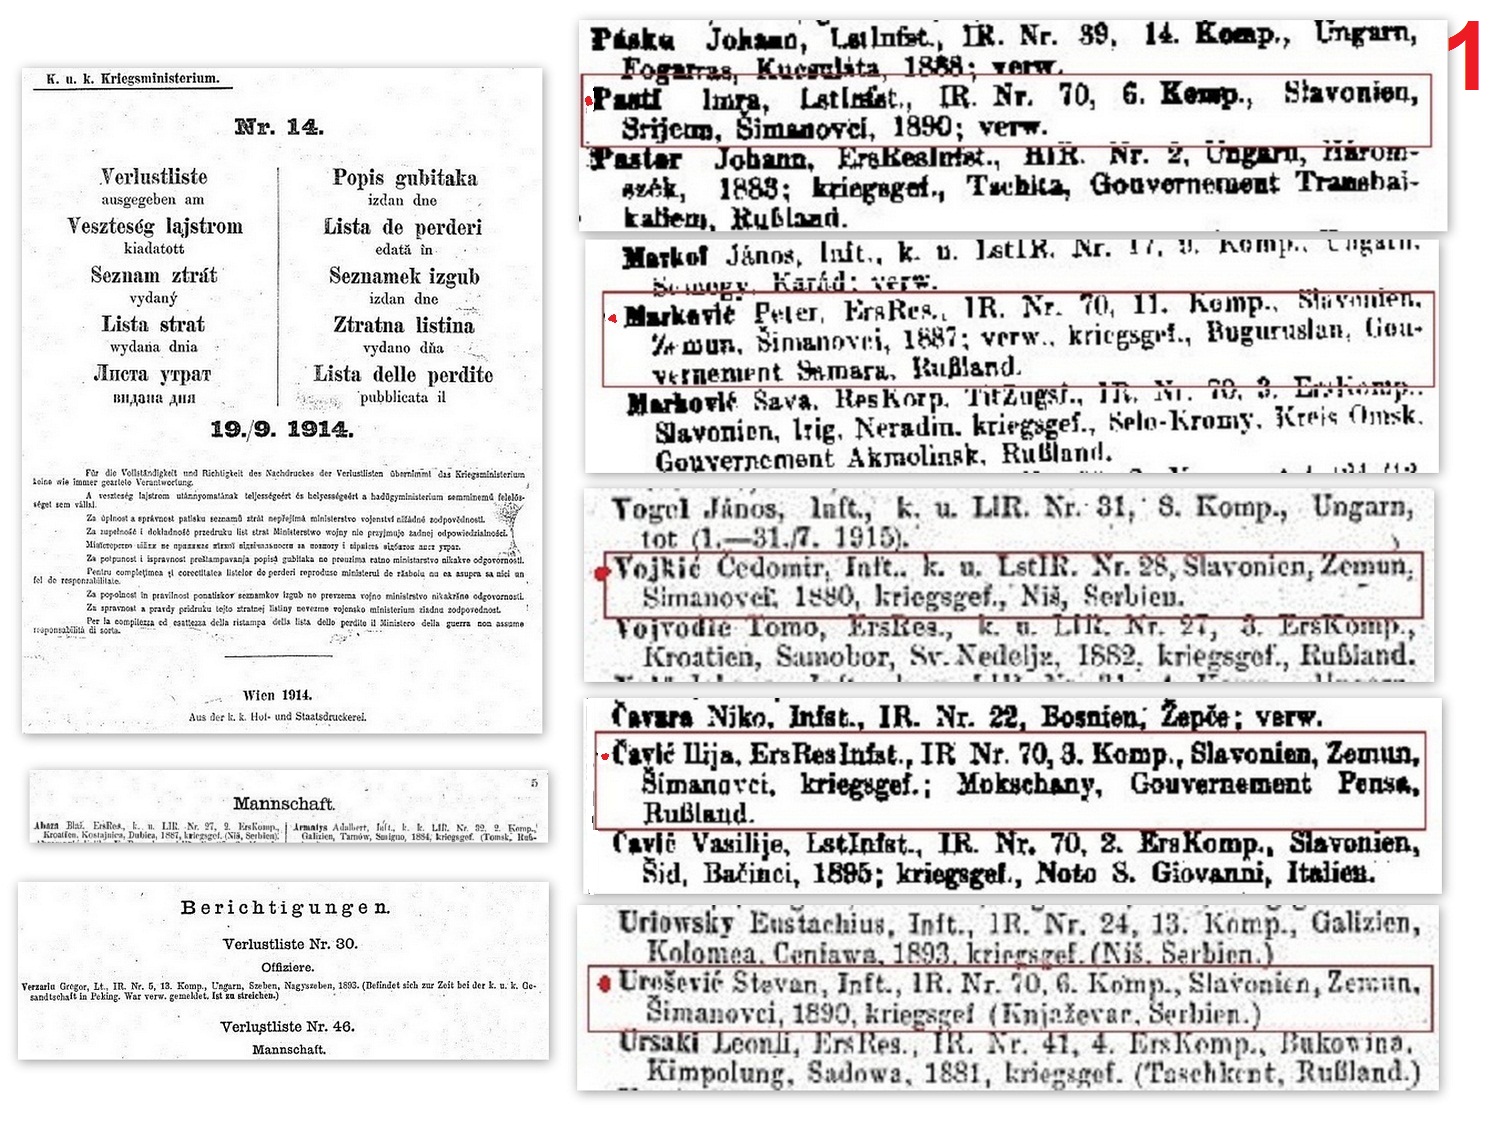 K. u. k. Kriegsministerium.
Nr. 14.
Verlustliste
ausgegeben am
Veszteség lajstrom
kiadatott
Seznam ztrát
vydaný
Lista strat
wydana dnia
Листа утрат
видана дня
Popis gubitaka
izdan dne
Lista de perderi
edată în
Seznamek izgub
izdan dne
Ztratna listina
vydano dňa
Lista delle perdite
pubblicata il
19./9. 1914.
Für die Vollständigkeit und Richtigkeit des Nachdruckes der Verlustlisten übernimmt das Kriegsministerium
keine wie immer geartete Verantwortung.
A veszteség lajstrom utánnyomatának teljességeért és helyességeért a hadügyministerium semminemű felelős-
séget sem vállal.
Za úplnost a správnost patisku seznamů ztrát nepřejímá ministerstvo vojenství nižádné zodpovědnosti.
Za zupełność i dokładność przedruku list strat Ministerstwo wojny nie przyjmuje żadnej odpowiedzialności.
Za potpunost i ispravnost preštampavanja popisâ gubitaka ne preuzima ratno ministarstvo nikakve odgovornosti.
Pentru completimea și corectitatea listelor de perderi reproduse ministerul de răsboiu nu ea asupra sa nici un
fel de responsabilitate.
Za popolnost in pravilnost ponatiskov seznamkov izgub ne prevzema vojno ministrstvo nikakršne odgovornosti.
Za spravnost a pravdy pridruku tejto stratnej listiny nevezme vojensko ministerium žiadnu zodpovednost.
Per la compitezza ed esattezza della ristampa della lista delle perdite il Ministero della guerra non assume
responsabilità di sorta.
Wien 1914.
Aus der k. k. Hof- und Staatsdruckerei.
5
Mannschaft.
Abaza Blaž, ErsRes., k. u. LIR. Nr. 27, 2. ErsKomp.,
Kroatien, Kostajnica, Dubica, 1887, kriegsgef. (Niš, Serbien).
Armatys Adalbert, Inft., k. k. LIR. Nr. 32, 2. Komp.,
Galizien, Tarnów, Śmigno, 1884, kriegsgef. (Tomsk, Ruß-
Berichtigungen.
Verlustliste Nr. 30.
Offiziere.
Verzariu Gregor, Lt., IR. Nr. 5, 13. Komp., Ungarn, Szeben, Nagyszeben, 1893. (Befindet sich zur Zeit bei der k. u. k. Ge-
sandtschaft in Peking. War verw. gemeldet. Ist zu streichen.)
Verlustliste Nr. 46.
Mannschaft.
1
Pásku Johann, LstInfst., IR. Nr. 39, 14. Komp., Ungarn,
Fogarras, Kucsuláta, 1888; verw.
Pastí Imra, LstInfst., IR. Nr. 70, 6. Komp., Slavonien,
Srijem, Šimanovci, 1890; verw.
Pastor Johann, ErsResInfst., HIR. Nr. 2, Ungarn, Három-
szék, 1883; kriegsgef., Tschita, Gouvernement Transbai-
kaliem, Rußland.
Markof János, Inft., k. u. LstIR. Nr. 17, 9. Komp., Ungarn,
Somogy, Karád; verw.
Marković Peter, ErsRes., IR. Nr. 70, 11. Komp., Slavonien,
Zemun, Šimanovci, 1887; verw., kriegsgef., Buguruslan, Gou-
vernement Samara, Rußland.
Marković Sava, ResKorp. TitZugsf., IR. Nr. 70, 3. ErsKomp.,
Slavonien, Irig, Neradin, kriegsgef., Selo-Kromy, Kreis Omsk,
Gouvernement Akmolinsk, Rußland.
Vogel János, Inft., k. u. LIR. Nr. 31, 8. Komp., Ungarn,
tot (1.—31./7. 1915).
Vojkić Čedomir, Inft., k. u. LstIR. Nr. 28, Slavonien, Zemun,
Šimanovci, 1880, kriegsgef., Niš, Serbien.
Vojvodić Tomo, ErsRes., k. u. LIR. Nr. 27, 3. ErsKomp.,
Kroatien, Samobor, Sv. Nedelja, 1882, kriegsgef., Rußland.
Čavara Niko, Infst., IR. Nr. 22, Bosnien, Žepče; verw.
Čavić Ilija, ErsResInfst., IR Nr. 70, 3. Komp., Slavonien, Zemun,
Šimanovci, kriegsgef.; Mokschany, Gouvernement Pensa,
Rußland.
Čavić Vasilije, LstInfst., IR. Nr. 70, 2. ErsKomp., Slavonien,
Šid, Bačinci, 1895; kriegsgef., Noto S. Giovanni, Italien.
Uriowsky Eustachius, Inft., IR. Nr. 24, 13. Komp., Galizien,
Kolomea, Ceniawa, 1893, kriegsgef. (Niš, Serbien.)
Urošević Stevan, Inft., IR. Nr. 70, 6. Komp., Slavonien, Zemun,
Šimanovci, 1890, kriegsgef (Knjaževac, Serbien.)
Ursaki Leonti, ErsRes., IR. Nr. 41, 4. ErsKomp., Bukowina,
Kimpolung, Sadowa, 1881, kriegsgef. (Taschkent, Rußland.)